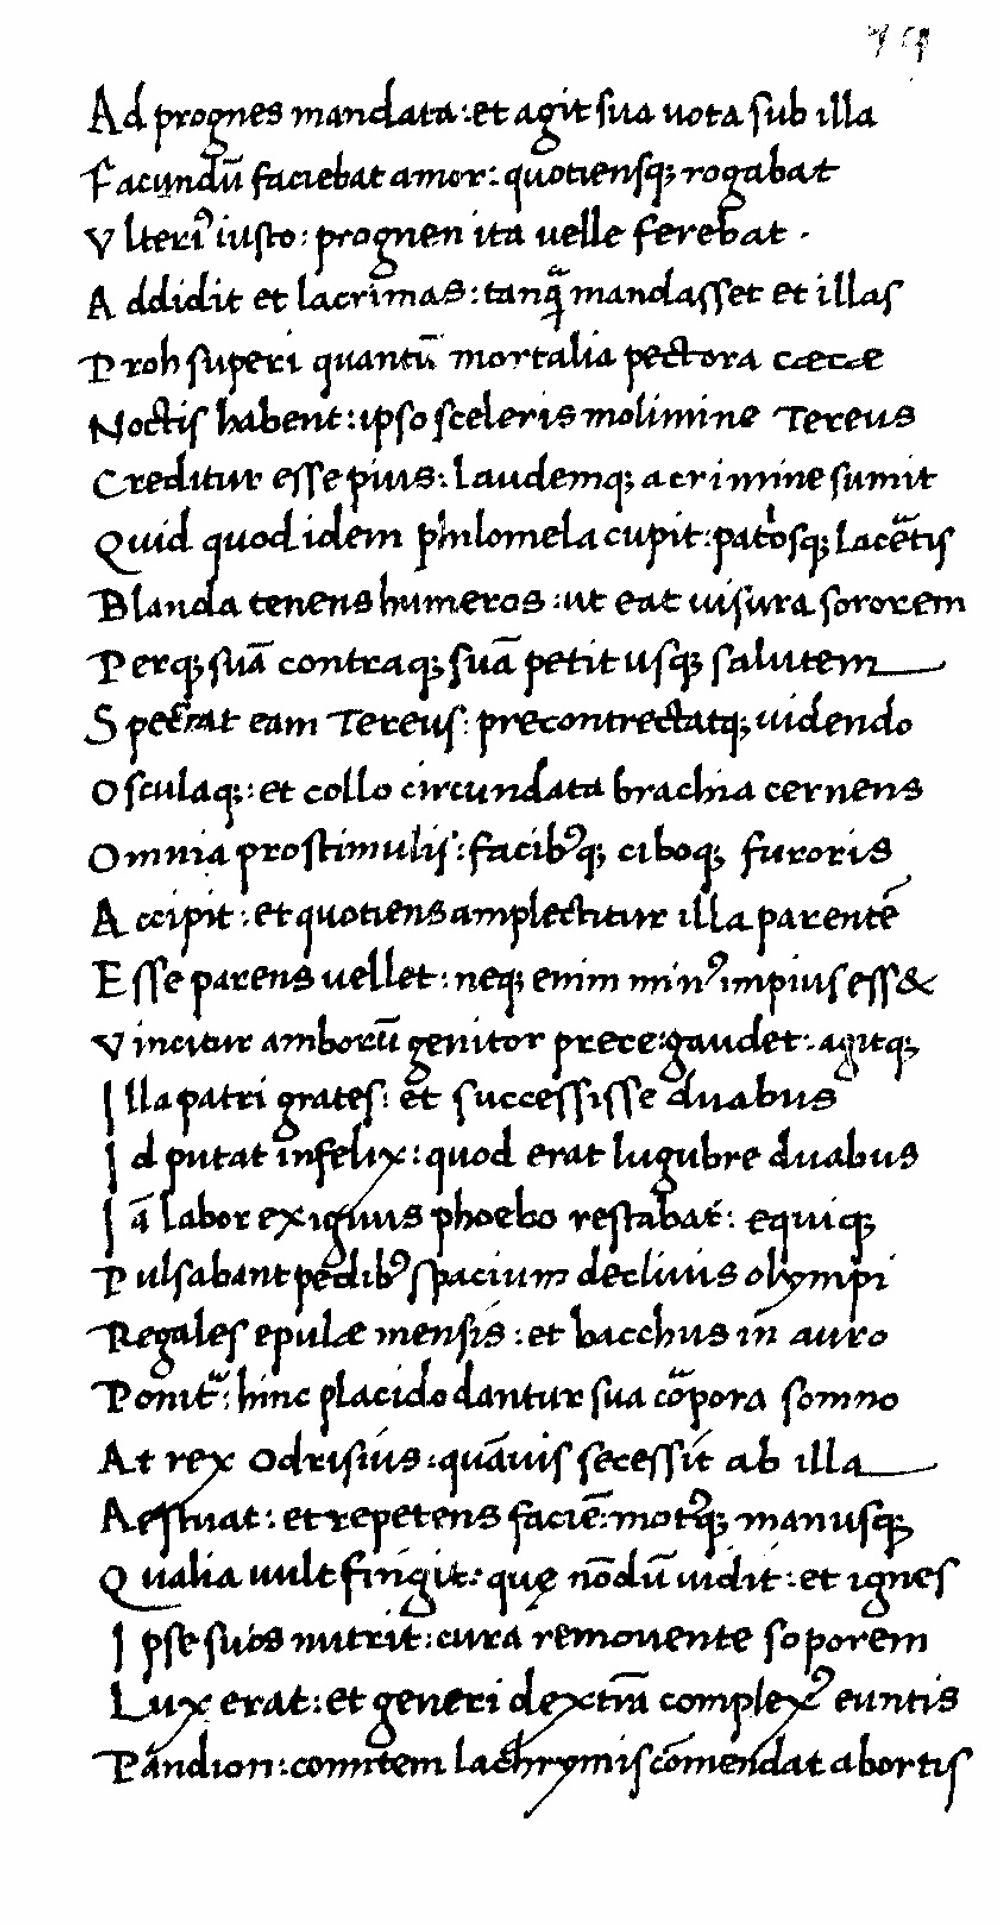 Ad prognes mandata: et agit sua uota sub illa
Facundũ faciebat amor: quotiensq; rogabat
Vlteriꝰ iusto: prognen ita uelle ferebat.
Addidit et lacrimas: tanqᷓ mandasset et illas
Proh superi quantũ mortalia pectora cæcæ
Noctis habent: ipso sceleris molimine Tereus
Creditur esse pius: laudemq; a crimine sumit
Quid quod idem philomela cupit: patⁱosq; lacẽtis
Blanda tenens humeros: ut eat uisura sororem
Perq; suã contraq; suã petit usq; salutem
Spectat eam Tereus: precontrectatq; uidendo
Osculaq;: et collo circundata brachia cernens
Omnia pro stimulis: facibꝰq; ciboq; furoris
Accipit: et quotiens amplectitur illa parentẽ
Esse parens uellet: neq; enim minꝰ impius ess&
Vincitur amborũ genitor prece: gaudet: agitq;
Illa patri grates: et successisse duabus
Id putat infelix: quod erat lugubre duabus
Iã labor exiguus phoebo restabat: equiq;
Pulsabant pedibꝰ spacium decliuis olympi
Regales epulæ mensis: et bacchus in auro
Ponitᷓ: hinc placido dantur sua cõpora somno
At rex Odrisius: quãuis secessit ab illa
Aestuat: et repetens faciẽ: motꝰq; manusq;
Qualia uult fingit: quę nõdũ uidit: et ignes
Ipse suos nutrit: cura remouente soporem
Lux erat: et generi dextrã complexꝰ euntis
Pandion: comitem lachrymis cõmendat abortis